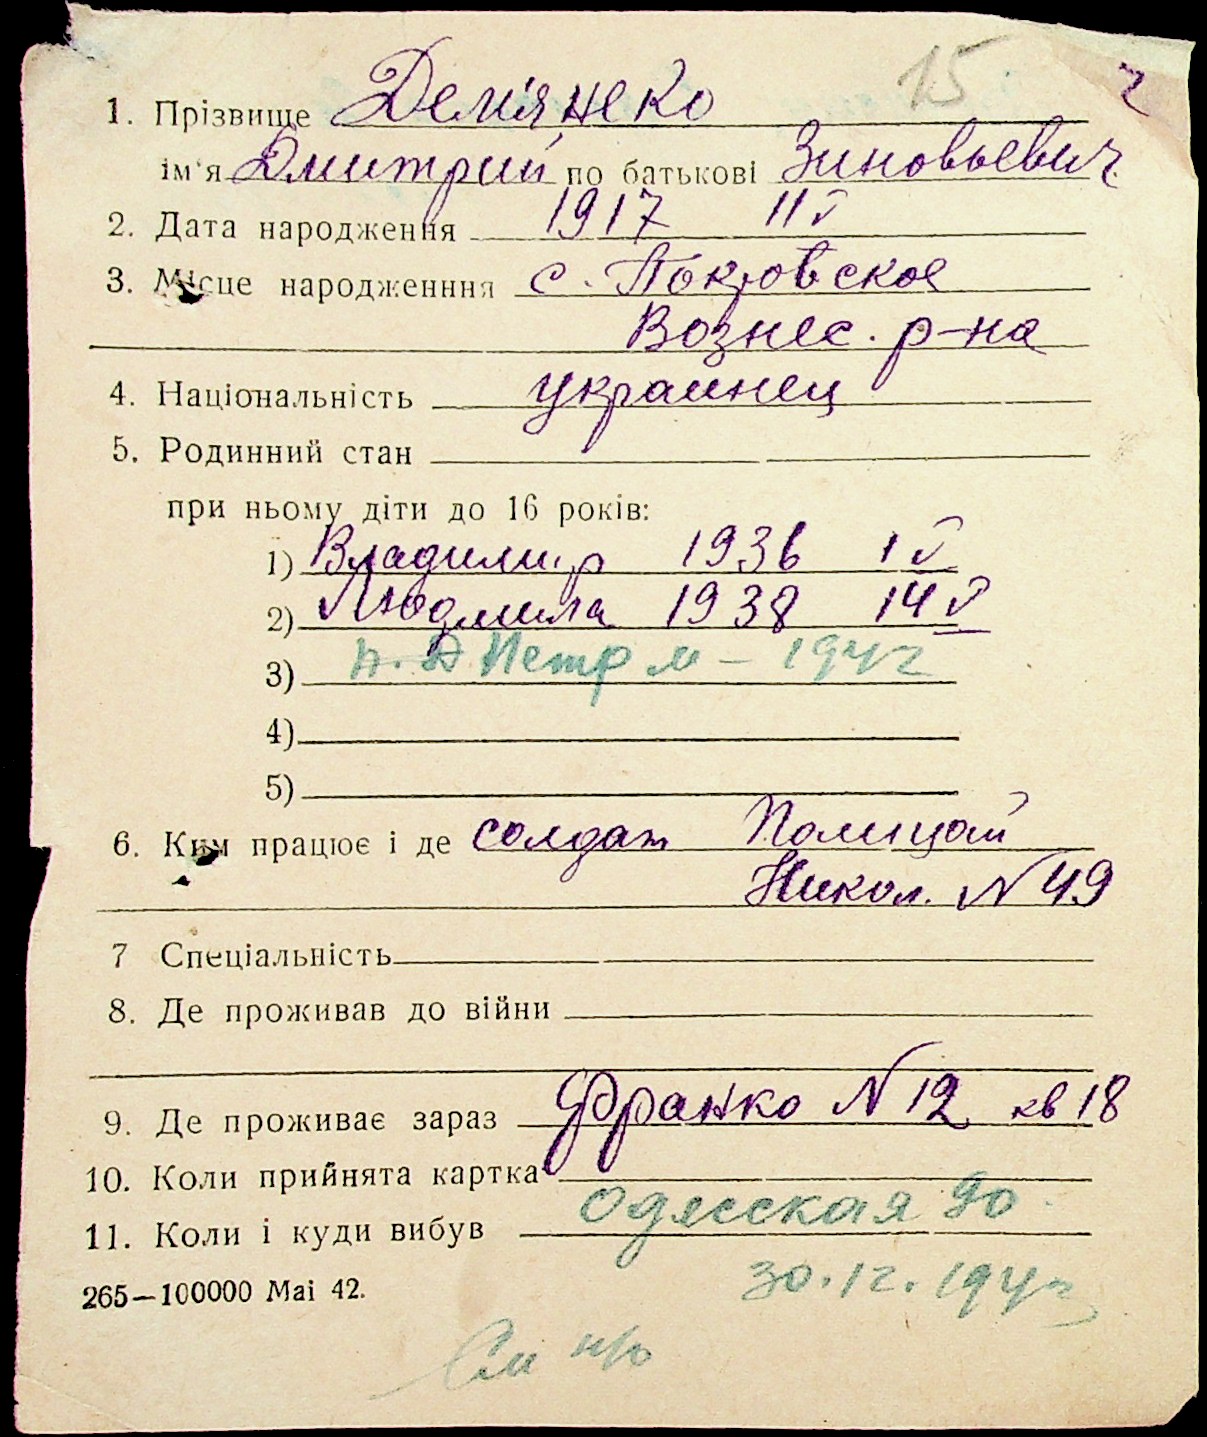 15 ч
1. Прізвище Дем'янеко
ім'я Дмитрий по батькові Зиновьевич
2. Дата народження 1917 11 V
3. Місце народженння с. Покровское
Вознес. р-на
4. Національність украинец
5. Родинний стан
при ньому діти до 16 років:
1) Владимир 1936 1 V
2) Людмила 1938 14 V
3) Петр м - 1942
4)
5)
6. Ким працює і де солдат Полицай
Никол. N 49
7 Спеціальність
8. Де проживав до війни
9. Де проживає зараз Франко N 12 кв 18
10. Коли прийнята картка
11. Коли і куди вибув Одесская 90
265—100000 Mai 42. 30.12.1942
См н/о